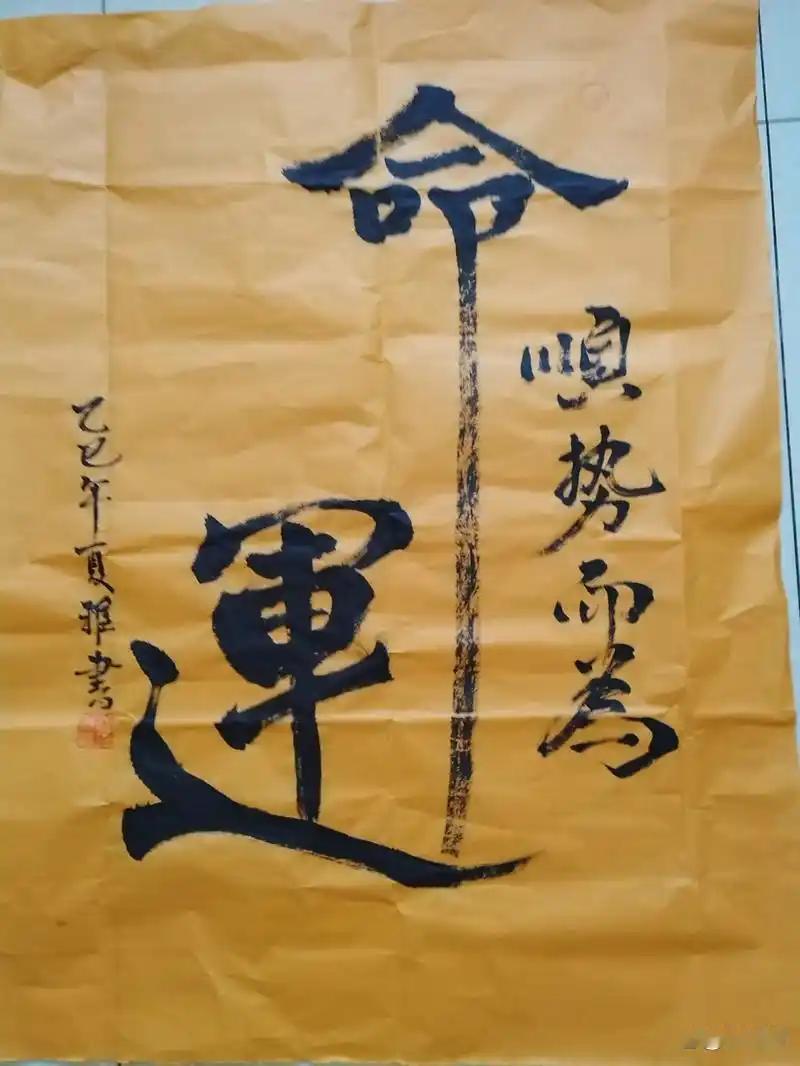 命運
順势而為
乙巳年夏雅書